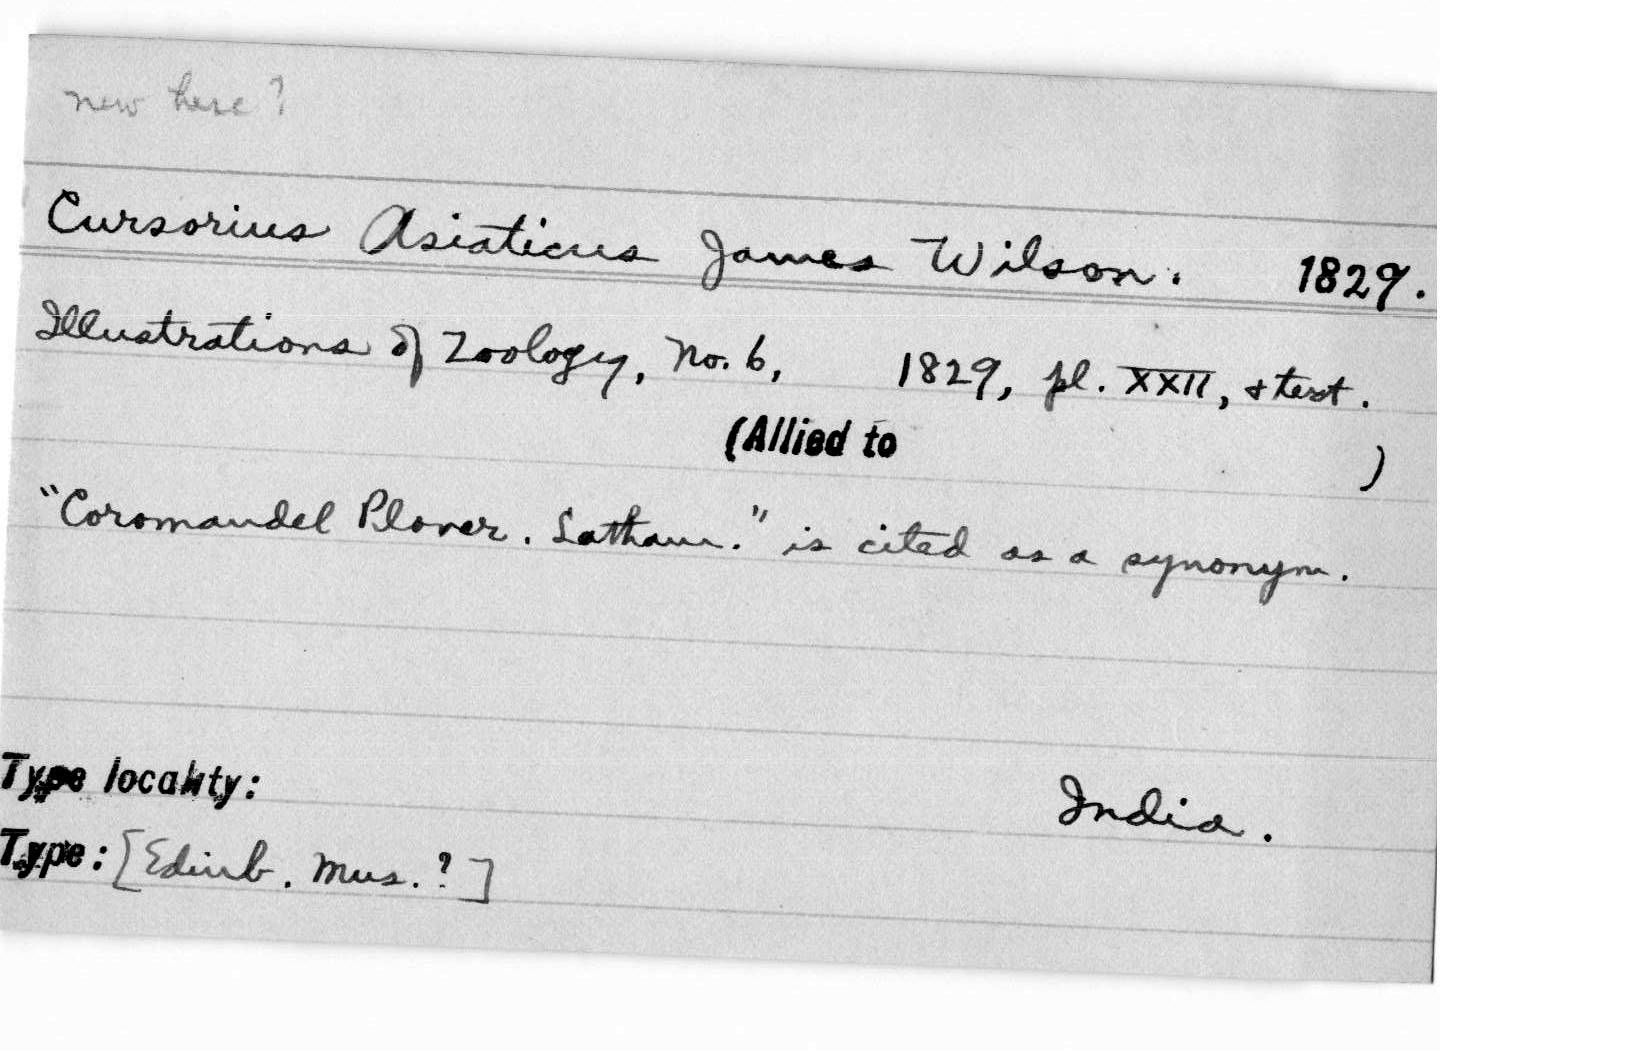 new here?
Cursorius Asiaticus James Wilson. 1829.
Illustrations of Zoology, No. 6, 1829, pl. XXII, & text.
(Allied to )
"Coromandel Plover. Latham." is cited as a synonym.
Type locality: India.
Type: [Edinb. Mus. ?]